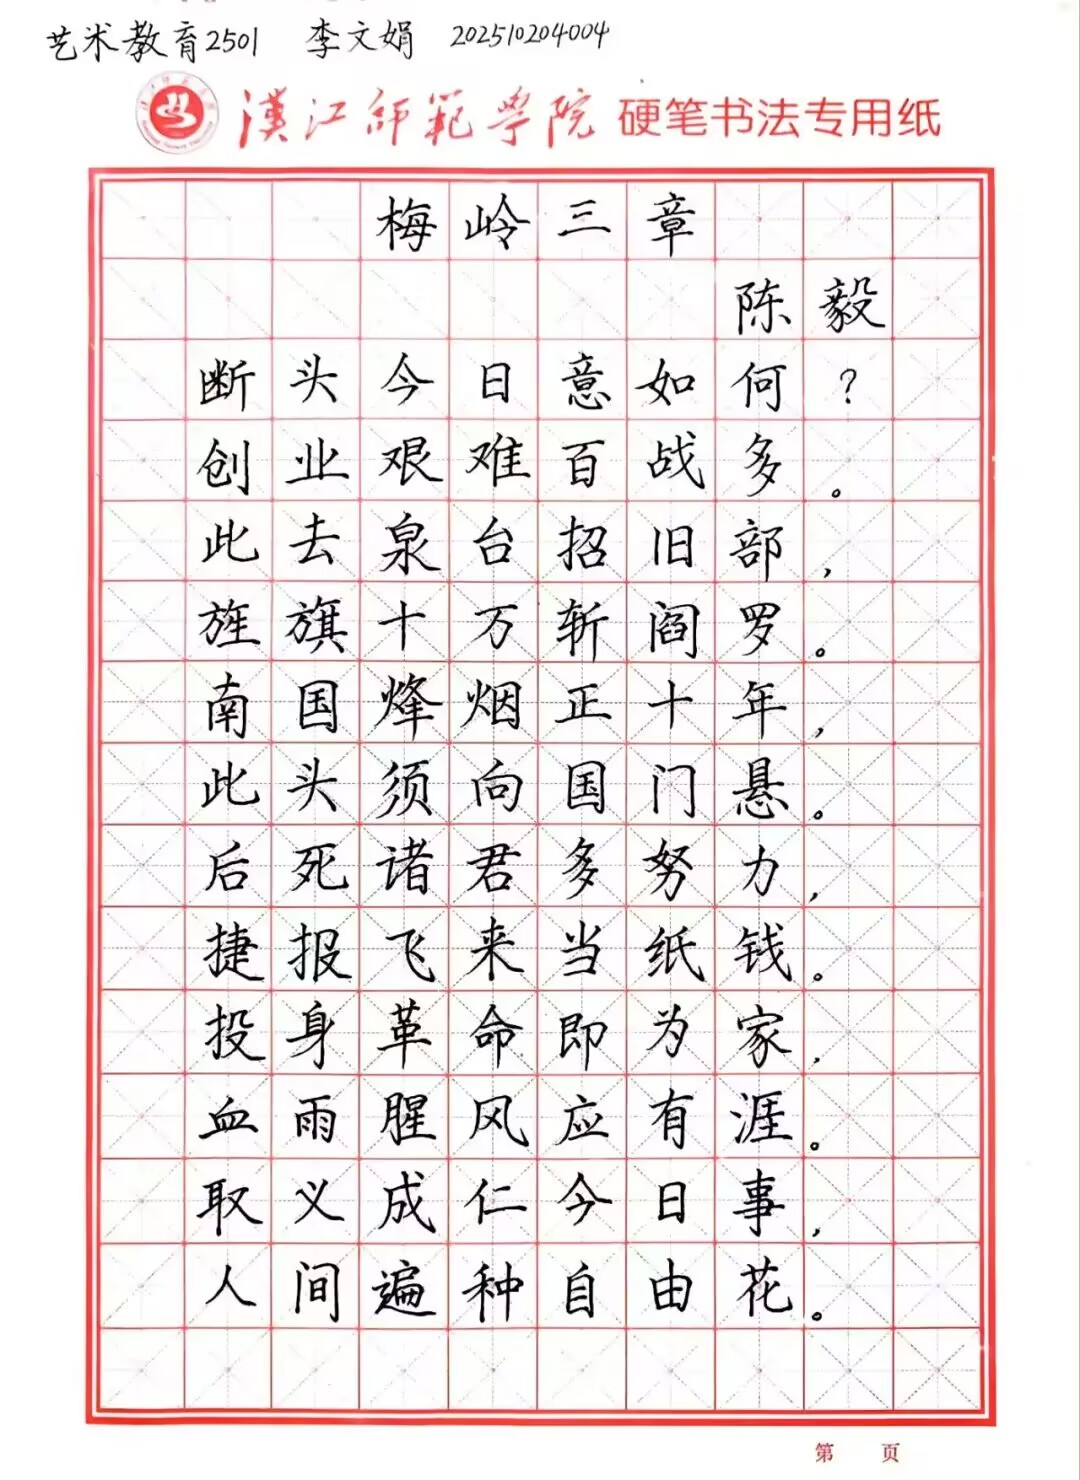 艺术教育2501 李文娟 202510204004
漢江师範学院 硬笔书法专用纸
梅岭三章
陈毅
断头今日意如何?
创业艰难百战多。
此去泉台招旧部,
旌旗十万斩阎罗。
南国烽烟正十年,
此头须向国门悬。
后死诸君多努力,
捷报飞来当纸钱。
投身革命即为家,
血雨腥风应有涯。
取义成仁今日事,
人间遍种自由花。
第 页